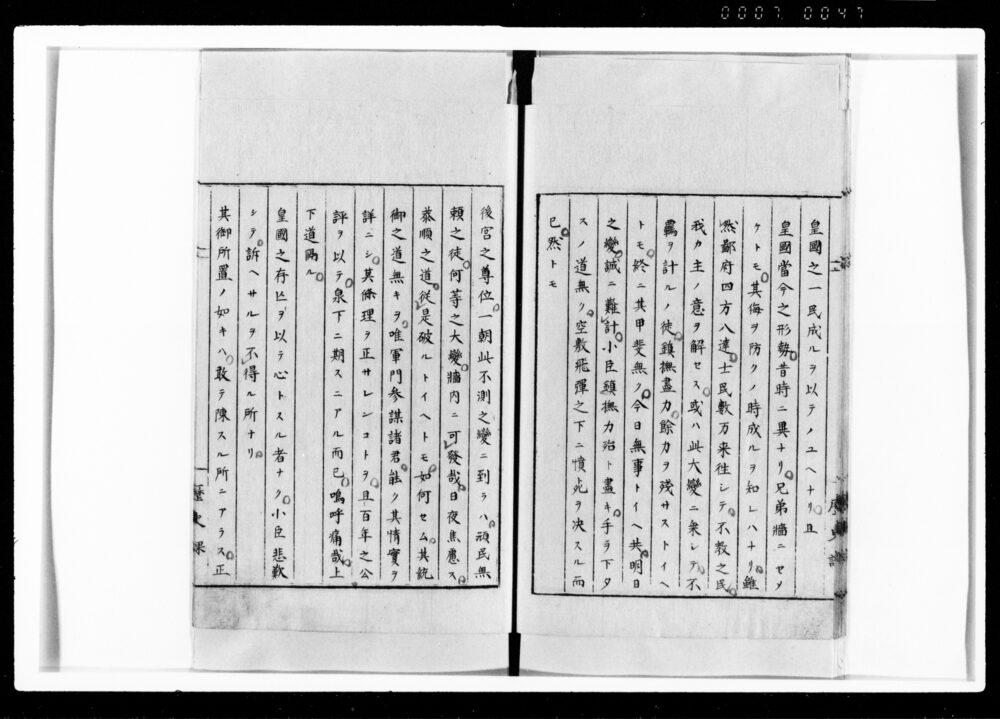 0007 0047
皇國之一民成ルヲ以テノユヘナリ且
皇國當今之形勢昔時ニ異ナリ兄弟牆ニセメ
ケトモ其侮ヲ防クノ時成ルヲ知レハナリ雖
然鄙府四方八達士民數万来往シテ不教之民
我カ主ノ意ヲ解セス或ハ此大變ニ乗シテ不
羈ヲ計ルノ徒鎮撫盡力餘力ヲ残サストイヘ
トモ終ニ其甲斐無ク今日無事トイヘ共明日
之變誠ニ難計小臣鎮撫力殆ト盡キ手ヲ下タ
スノ道無ク空敷飛彈之下ニ憤死ヲ决スル而
已然トモ
後宮之尊位一朝此不測之變ニ到ラハ頑民無
頼之徒何等之大變牆内ニ可發哉日夜焦慮ス
恭順之道従是破ルトイヘトモ如何セム其統
御之道無キヲ唯軍門参謀諸君能ク其情實ヲ
詳ニシ其條理ヲ正サレンコトヲ且百年之公
評ヲ以テ泉下ニ期スニアル而已嗚呼痛哉上
下道隔ル
皇國之存亡ヲ以テ心トスル者ナク小臣悲歎
シテ訴ヘサルヲ不得ル所ナリ
其御所置ノ如キハ敢テ陳スル所ニアラス正
歴史課